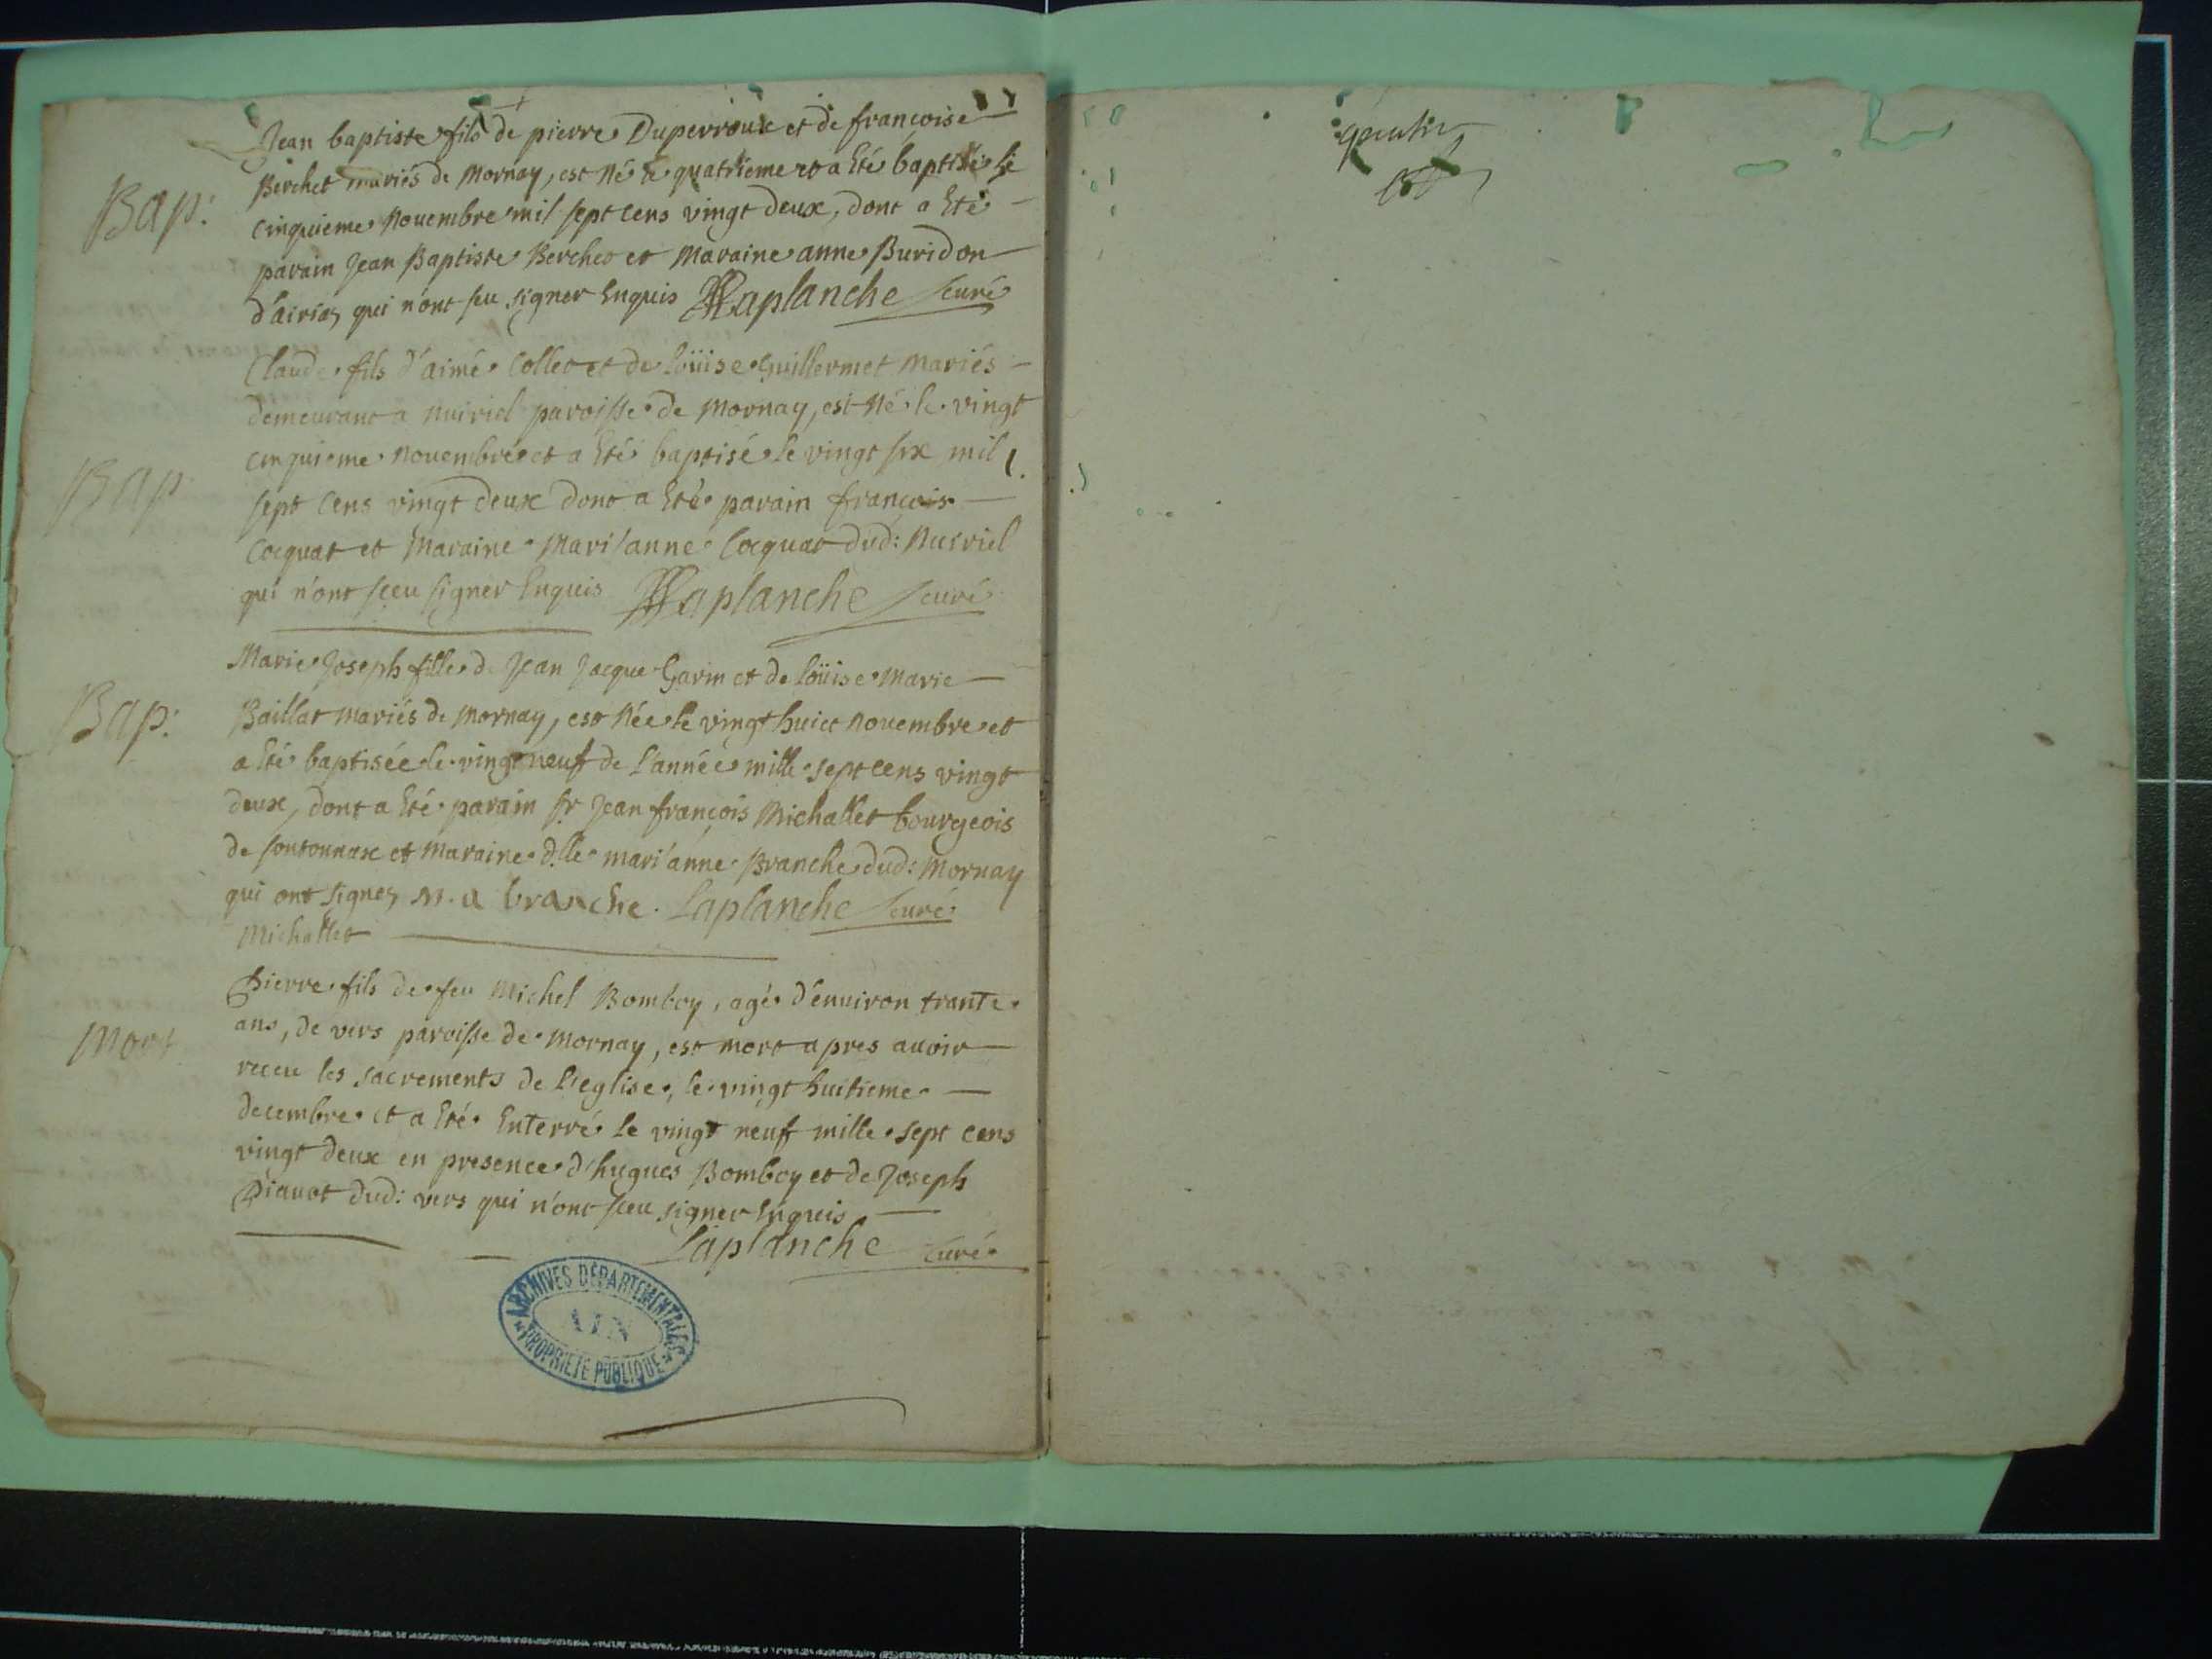 Jean baptiste fils de pierre Duperroux et de françoise
Berchet mariés de Mornay, est Né le quatrieme et a Eté baptisé le
Bap:
cinquieme Nouembre mil sept cens vingt deux, dont a Eté
parain Jean Baptiste Berchet et Maraine anne Buridon
d'airiaz qui n'ont seu signer Enquis Laplanche curé
Claude fils d'aimé Collet et de Loüise Guillermet Mariés
demeurant a nuiriel paroisse de Mornay, est Né le vingt
cinquieme Nouembre et a Eté baptisé le vingt six mil
Bap
sept cens vingt deux dont a Eté parain françois
Cocquat et Maraine Mari'anne Cocquat dud: Nuiriel
qui n'ont sceu signer Enquis Laplanche curé
Marie Joseph fille de Jean Jacque Garin et de Loüise Marie
Bap:
Baillat mariés de Mornay, est Née le vingt huict Nouembre et
a Eté baptisée le vingt neuf de l'année mille sept cens vingt
deux, dont a Eté parain sr Jean françois Michallet bourgeois
de sontonnax et Maraine d.lle mari'anne Branche dud: Mornay
qui ont signez M. a branche. Laplanche curé
Michallet
Pierre fils de feu Michel Bomboy, agé d'enuiron trante
Mort
ans, de vers paroisse de Mornay, est mort apres auoir
receu les sacrements de l'eglise, le vingt huitieme
decembre et a Eté Enterré le vingt neuf mille sept cens
vingt deux en presence d'hugues Bomboy et de Joseph
Piauot dud: vers qui n'ont sceu signer Enquis
Laplanche curé
ARCHIVES DÉPARTEMENTALES
AIN
PROPRIÉTÉ PUBLIQUE